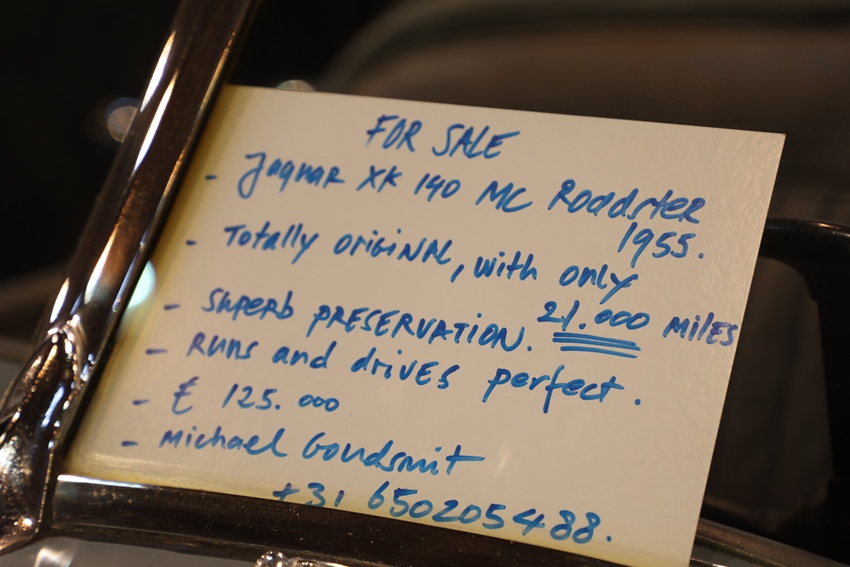 FOR SALE
- Jaguar XK 140 MC Roadster
1955.
- Totally ORIGINAL, with only
21.000 MILES
- Superb PRESERVATION.
- Runs and drives perfect.
- € 125.000
- Michael Goudsmit
+31 650205488.